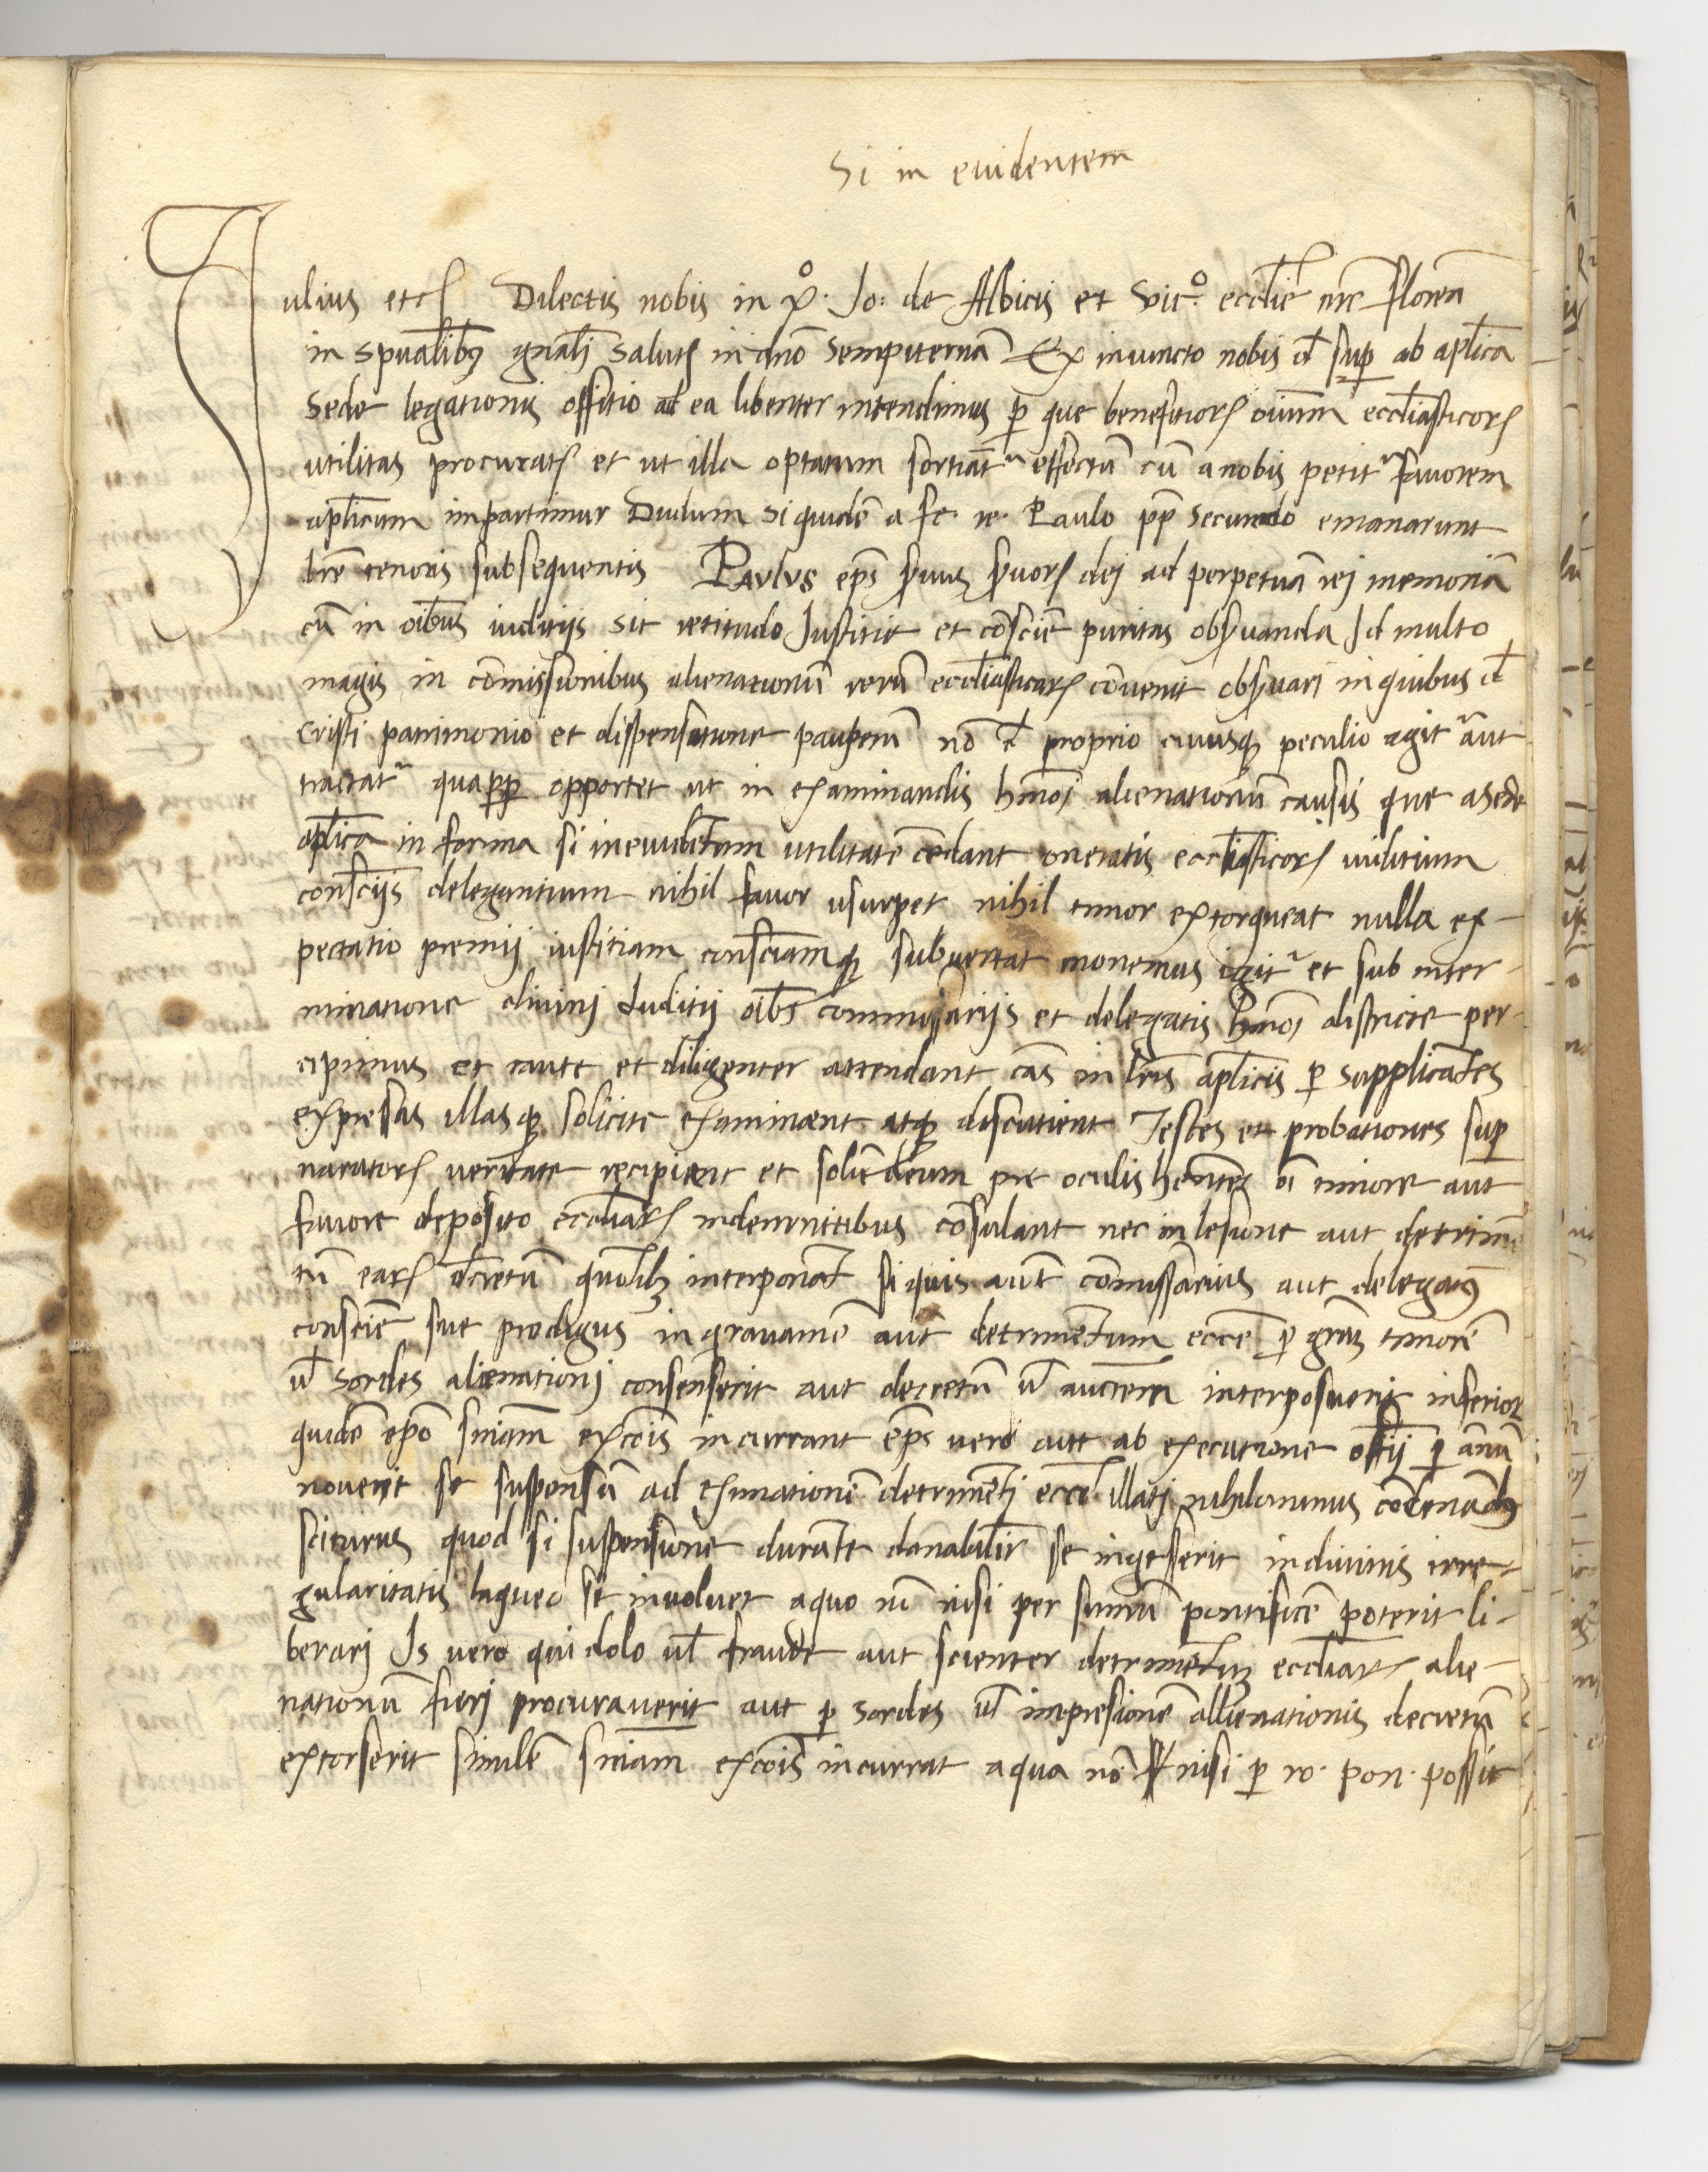 Si in euidentem
Julius etc Dilectis nobis in xº. Jo: de Albicis et vicº. ecclie nre floren̄
in spūalibus gn̄ali salutē in dno sempiternā Ex iniuncto nobis d sup ab aplica
sede legationis offitio ad ea libenter intendimus p que benefitiorꝝ oiumm eccliasticorꝝ
utilitas procuratꝝ et ut illa optatum sortiāt effectū cū a nobis petit fauorem
aplicum impartimur Dudum siquidē a fe. re. Paulo pp̄ secundo emanarunt
lrē tenoris subsequentis Paulus ep̄s seruus seruorꝝ dej ad perpetuā rej memoriā
cū in oībus inditijs sit retitudo Justitie et cōscie puritas obseruanda Id multo
magis in cōmissionibus alienationū rerū eccliasticarꝝ cōuenit obseruari in quibus d
cristi patrimonio et dispensatione pauperū nō d proprio cuiusqꝫ peculio agit aut
tractat quapp opportet ut in examinandis hmōi alienationū causis que a sede
aplica in forma si in euidētem utilitatē cedant oneratis eccliasticorꝝ iuditium
consciis delegantium nihil fauor usurpet nihil timor extorqueat nulla ex-
pectatio premij iustitiam consciamqꝫ subuertat monemus igit et sub inter-
minatione diuinj Juditij oībs commissarijs et delegatis hmōi districte per-
cipimus et caute et diligenter attendant cās in lris aplicis p supplicātes
expresas illasqꝫ solicite examinent atqꝫ discutient Testes et probationes sup
narratorꝝ ueritate recipient et solū deum pre oculis hēntes oī timore aut
fauore deposito eccliarꝝ indemnitibus cōsulant nec in lesione aut detrimē
tū earꝝ dcretū quolibꝫ interponāt si quis aūt comissarius aut delegatꝰ
conscie sue prodigus in grauamē aut detrimētum ecce p gram timorē
ul sordes alienationj consenserit aut decretū ul auctem interposuerit inferior
quidē epo sniam excois incurrant eps uero aut ab executione offij p annū
nouerit se suspensū ad exmationē detrimētj eccl illatj nihilominus cōdenādꝰ
sciturus quod si suspensione durāte danabilir se ingeserit in diuinis irre-
gularitatis laqueo se inuoluet a quo nō nisi per sumū pontificē poterit li-
berarj Is uero qui dolo ul fraude aut scienter detrimētuꝫ eccliarꝝ alie-
nationū fierj procurauerit aut p sordes ul impresionē allienationis decretū
extorserit similē sniam excois incurrat a qua nō nisi p ro. pon. possit